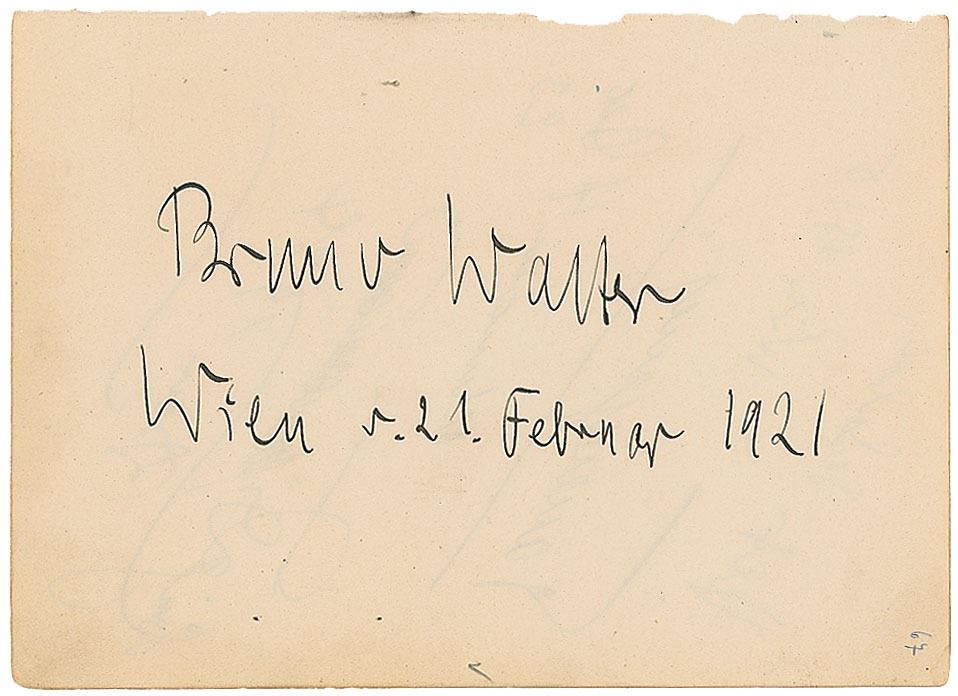 Bruno Walter
Wien r. 21. Februar 1921